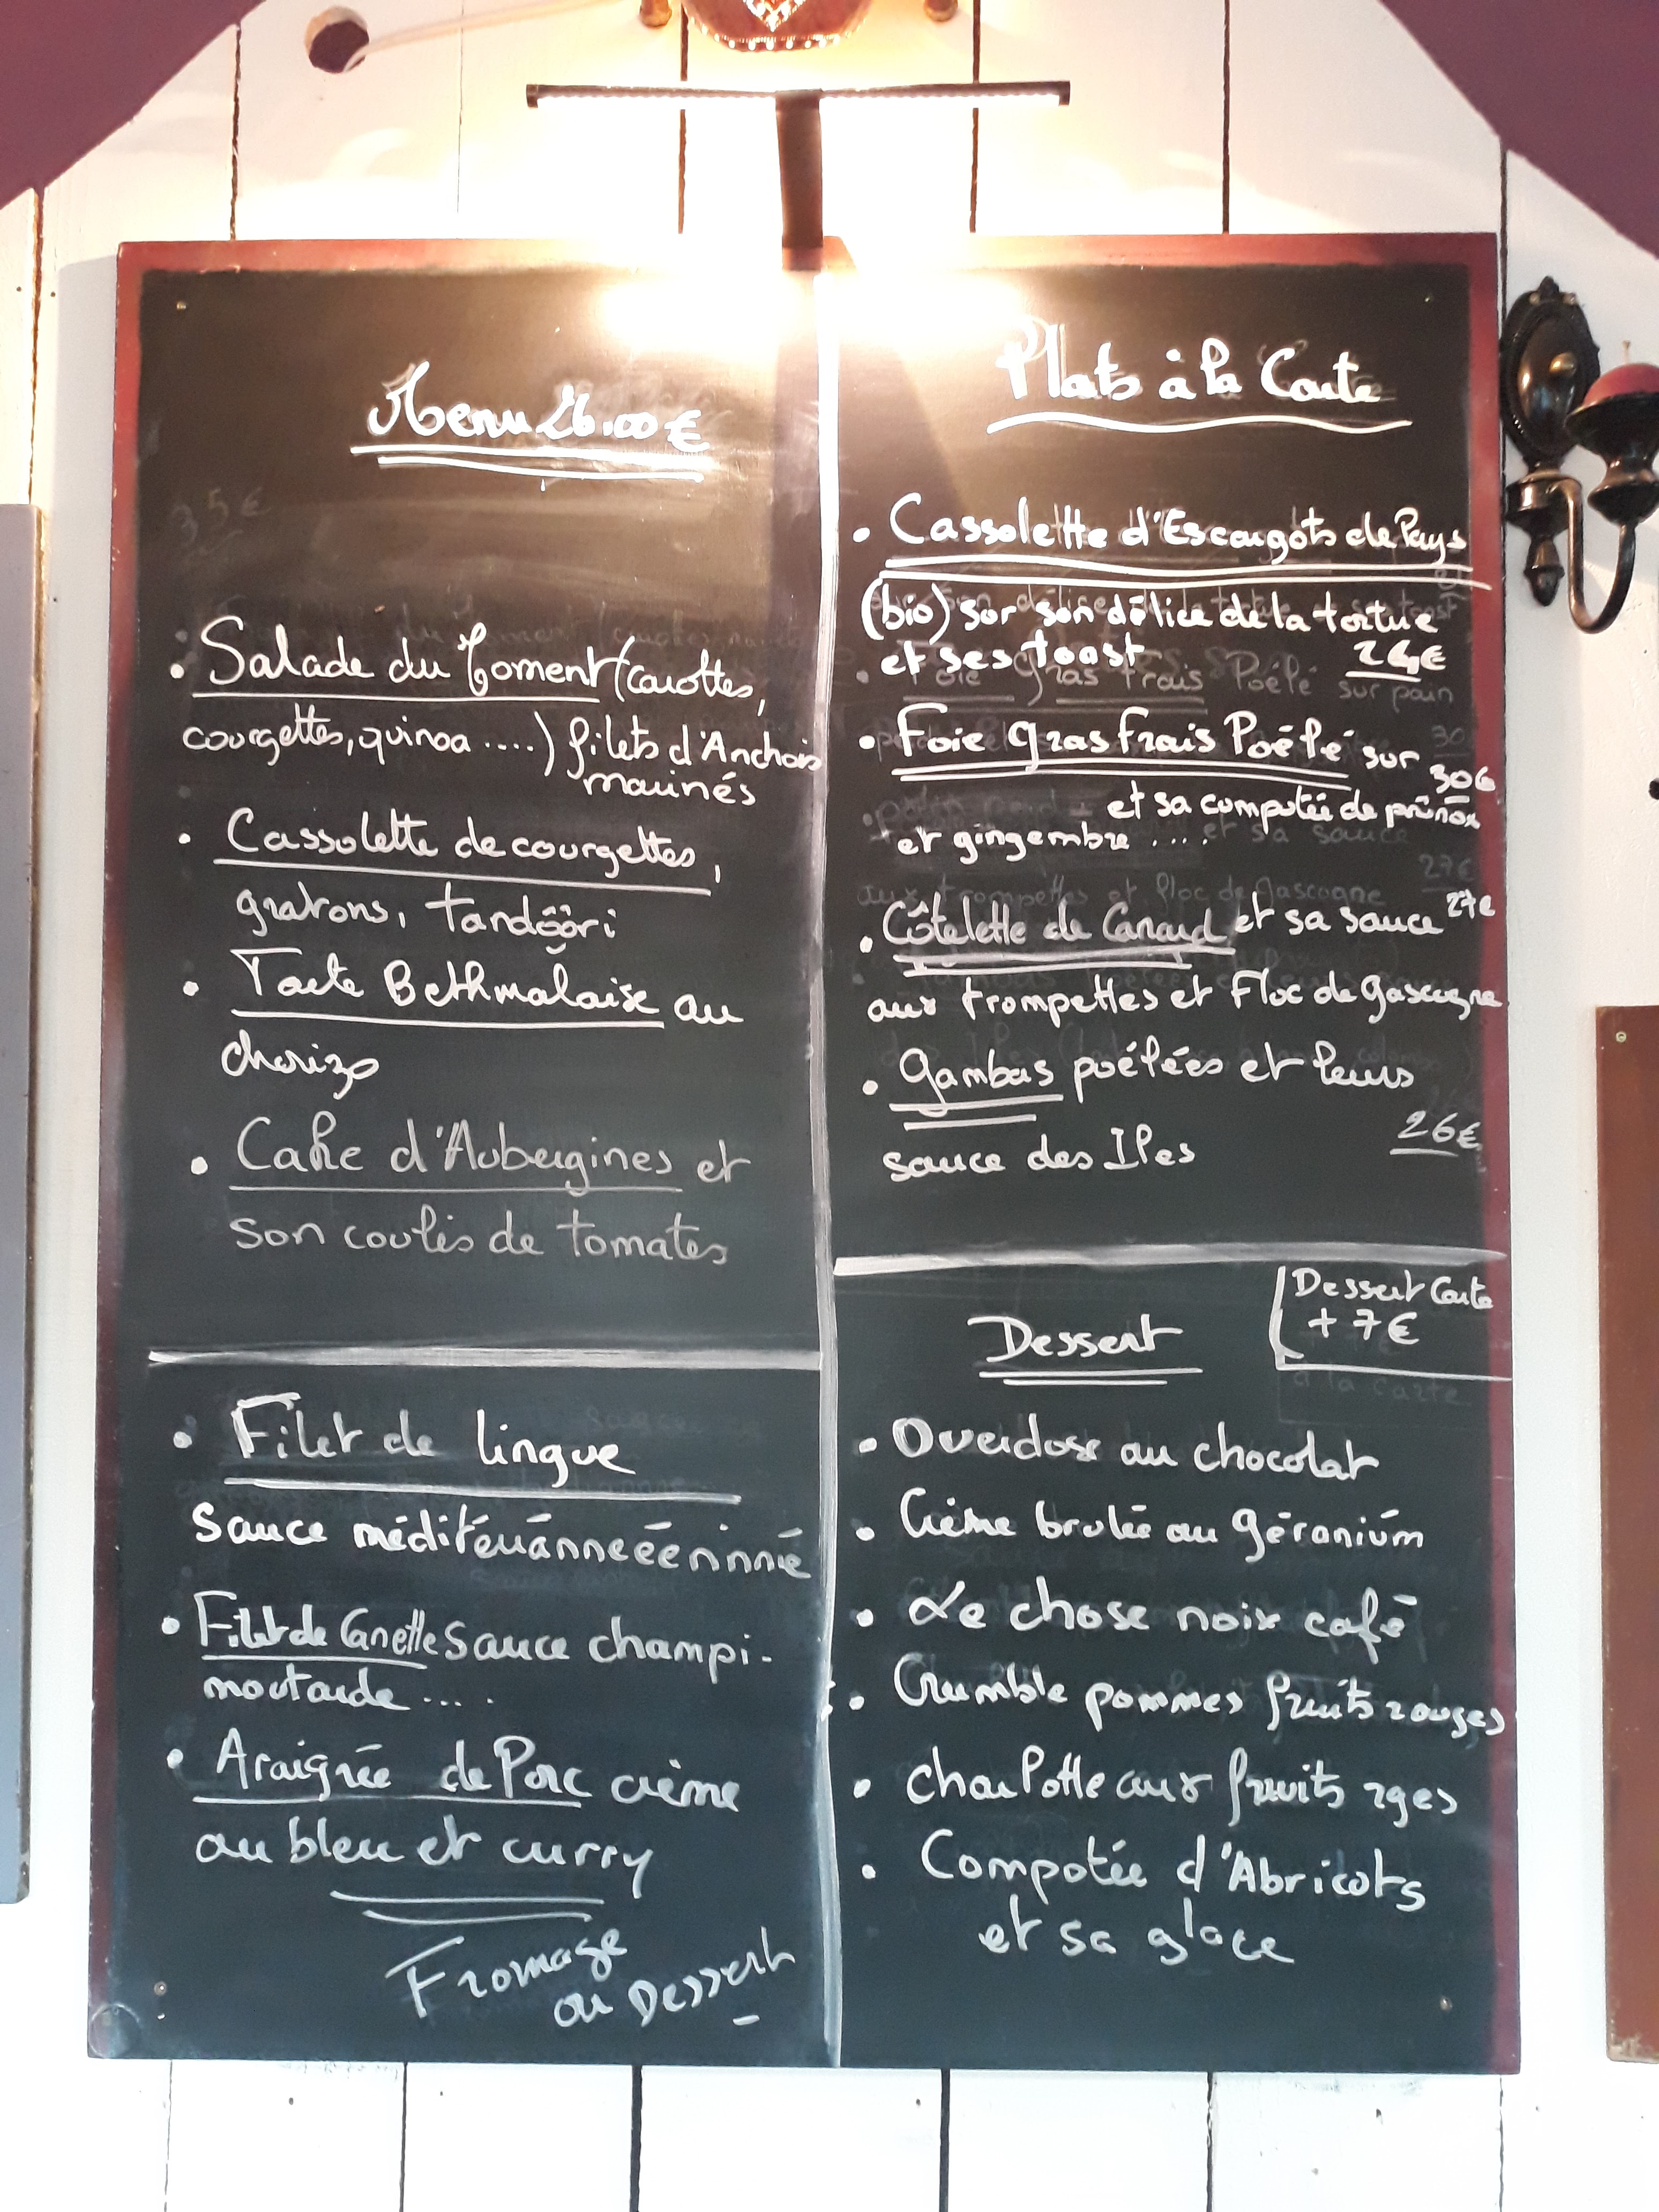 Menu 26.00€
• Salade du Moment (carottes,
courgettes, quinoa ....) filets d'Anchois
marinés
• Cassolette de courgettes,
gratons, tandôôri
• Tarte Bethmalaise au
chorizo
• Cake d'Aubergines et
son coulis de tomates
• Filet de lingue
sauce méditérránnéeéeninnié
• Filet de Canette sauce champi-
moutarde ....
• Araignée de Porc crème
au bleu et curry
Fromage
ou Dessert
Plats à la Carte
• Cassolette d'Escargots de Pays
(bio) sur son délice de la tortue
et ses toast
• Foie gras frais Poêlé sur
30€
et sa compotée de
et gingembre ....
• Côtelette de Canard et sa sauce 27€
aux trompettes et Floc de Gascogne
• Gambas poélées et leurs
sauce des Iles 26€
Dessert
Dessert Carte
+ 7€
• Overdose au chocolat
• Crème brulée au géranium
• Le chose noix café
• Crumble pommes fruits rouges
• charlotte aux fruits rges
• Compotée d'Abricots
et sa glace